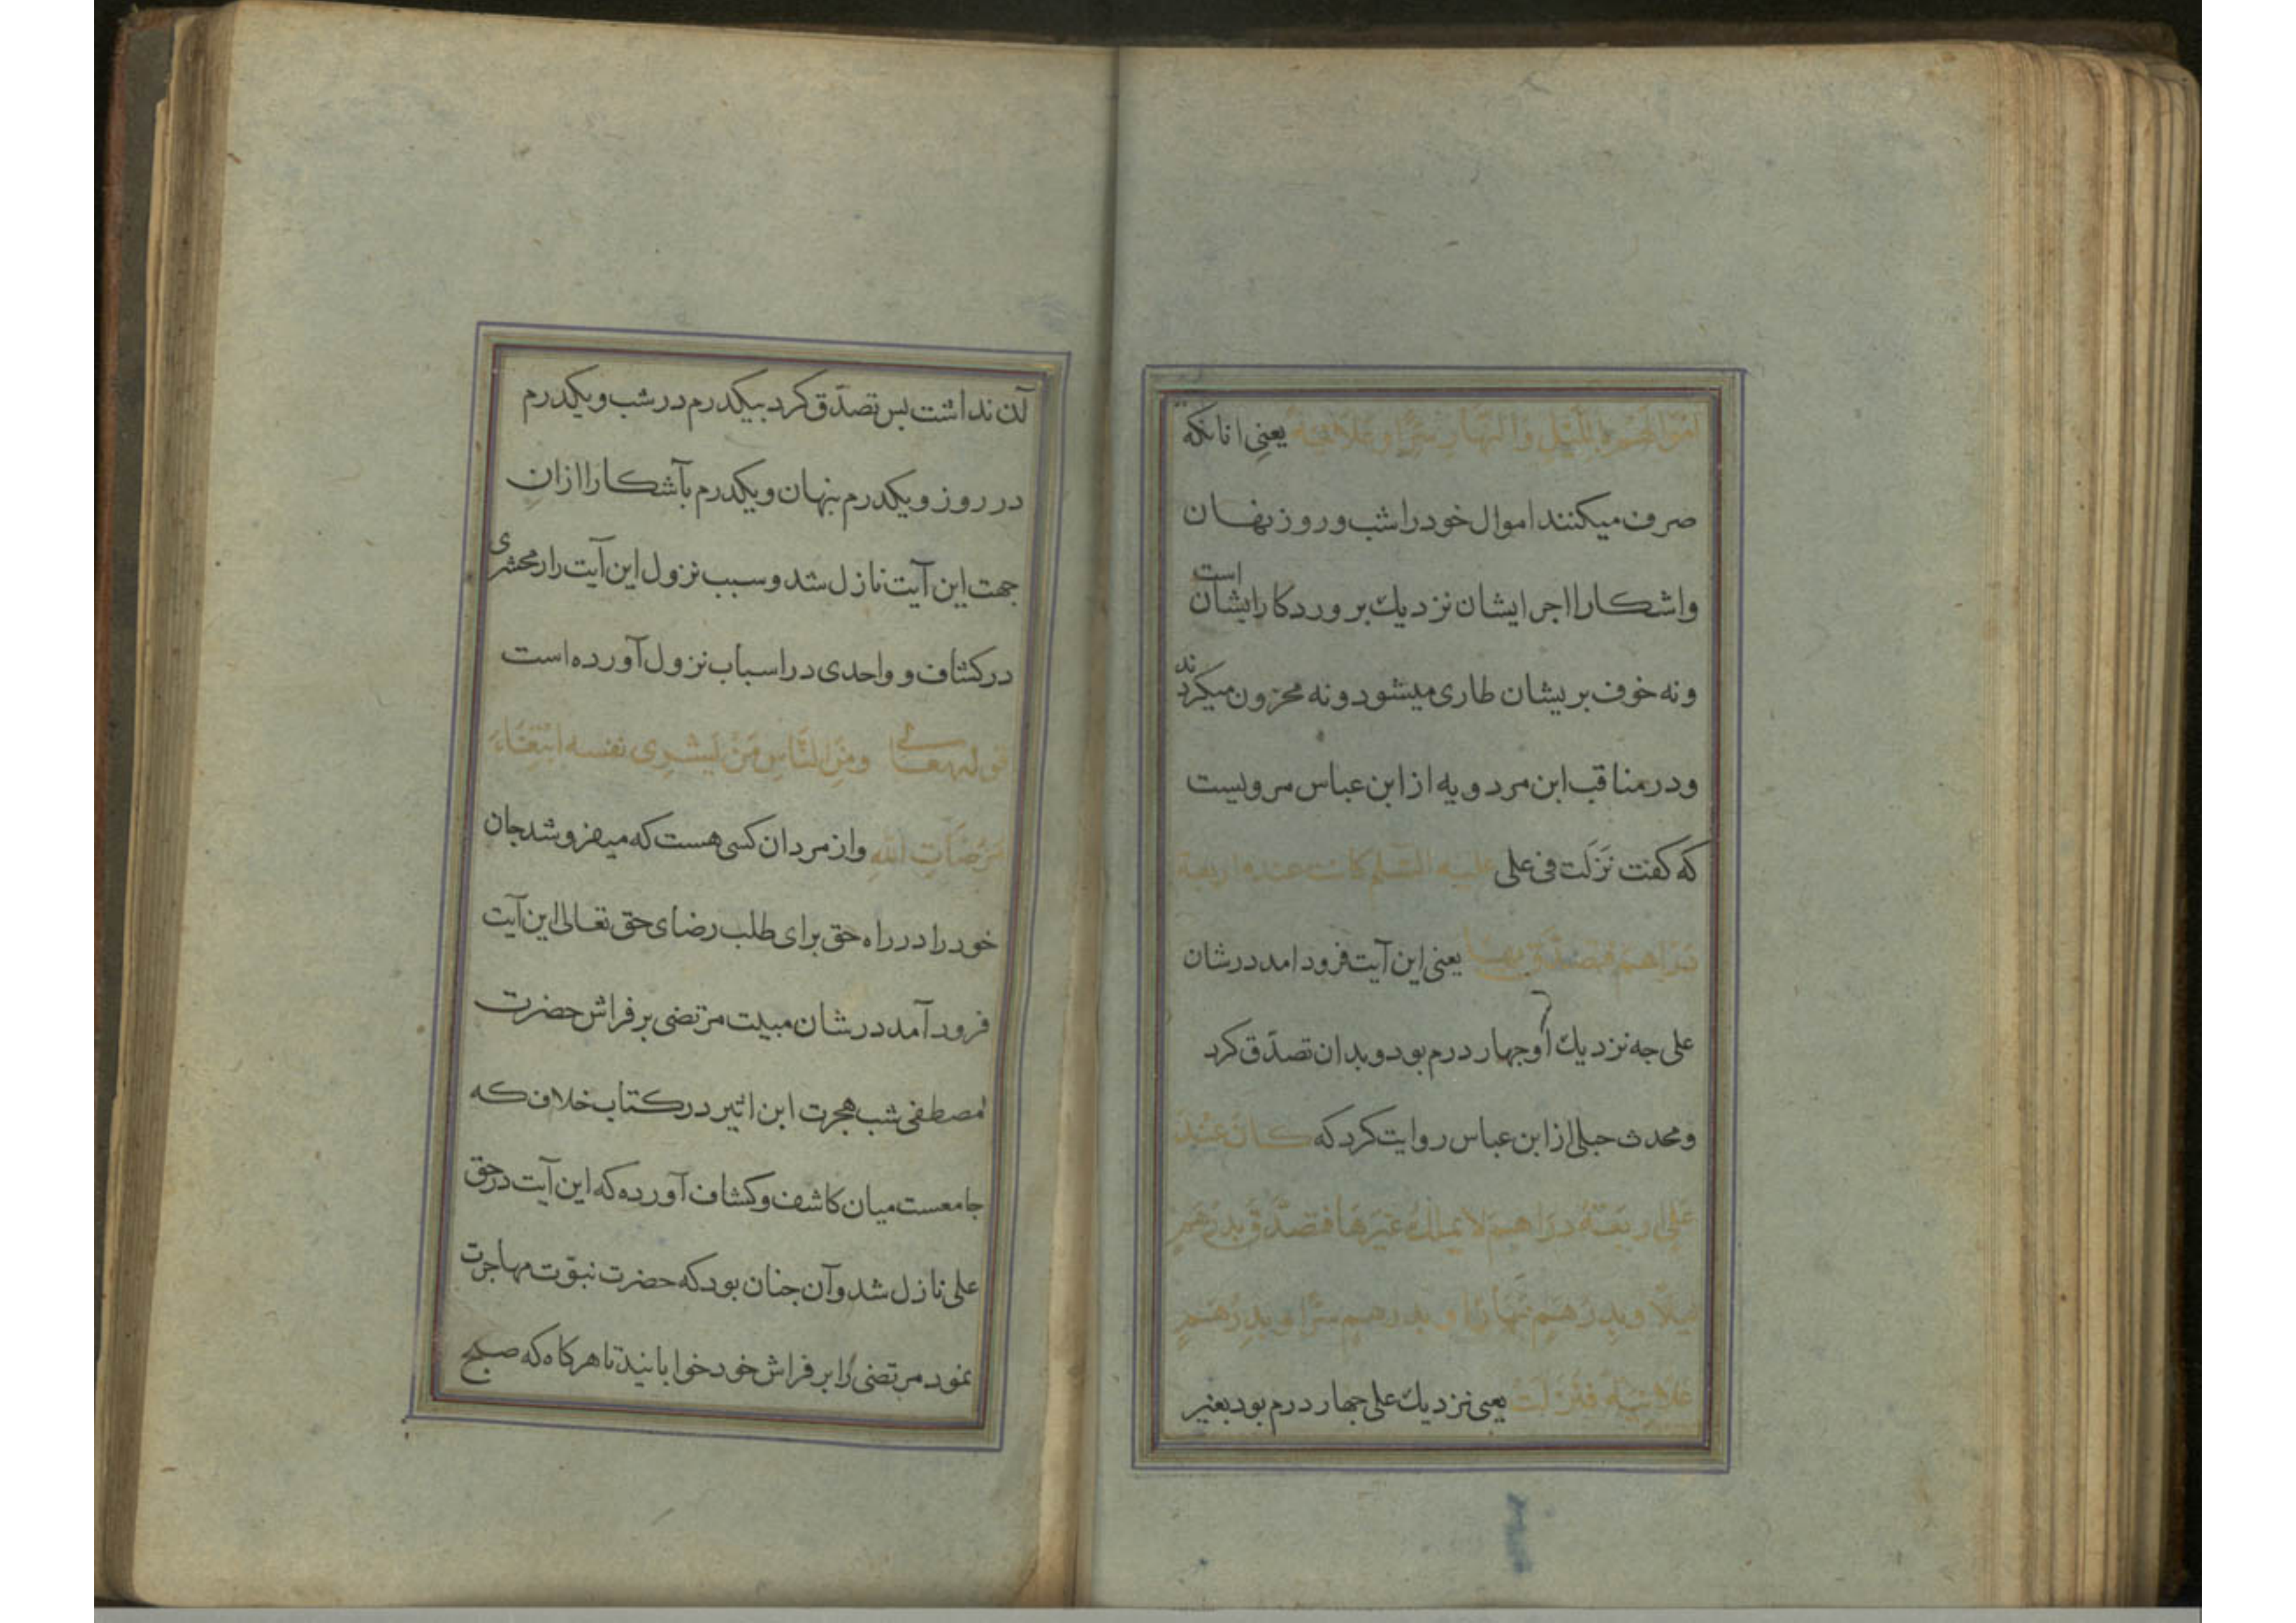 اموالهم بالليل والنهار سرا وعلانية يعنى انانكه
صرف ميكنند اموال خود را شب و روز نهان
واشكارا اجر ايشان نزديك بروردكار ايشان است
و نه خوف بر يشان طارى ميشود و نه محزون ميكردند
و در مناقب ابن مردويه از ابن عباس مرويست
كه كفت نَزلَت فى على عليه السّلم كانت عنده اربعة
دراهم فتصدّق بها يعنى اين آيت فرود امد در شان
على جه نزديك او جهار درم بود و بدان تصدّق كرد
و محدث حبلى از ابن عباس روايت كرد كه كان عند
على اربعة دراهم لا يملك غيرها فتصدّق بدرهم
ليلًا و بدرهم نهارًا و بدرهم سرًّا و بدرهم
علانية فنزلت يعنى نزديك على جهار درم بود بغير
آن نداشت بس تصدّق كرد بيكدرم در شب و يكدرم
در روز و يكدرم بنهان و يكدرم بآشكارا ازان
جهت اين آيت نازل شد و سبب نزول اين آيت را زمحشرى
در كشاف و واحدى در اسباب نزول آورده است
قوله تعالى ومن الناس من يشرى نفسه ابتغاء
مرضات الله و از مردان كسى هست كه ميفروشد جان
خود را در راه حق براى طلب رضاى حق تعالى اين آيت
فرود آمد در شان مبيت مرتضى بر فراش حضرت
مصطفى شب هجرت ابن اثير در كتاب خلاف كه
جامعست ميان كاشف و كشاف آورده كه اين آيت در حق
على نازل شد و آن جنان بود كه حضرت نبوّت مهاجرت
نمود مرتضى را بر فراش خود خوابانيد تا هر كاه كه صبح